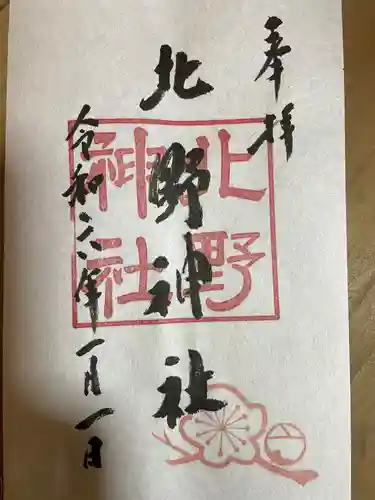 奉拝
北野神社
北野
神社
令和六年一月一日